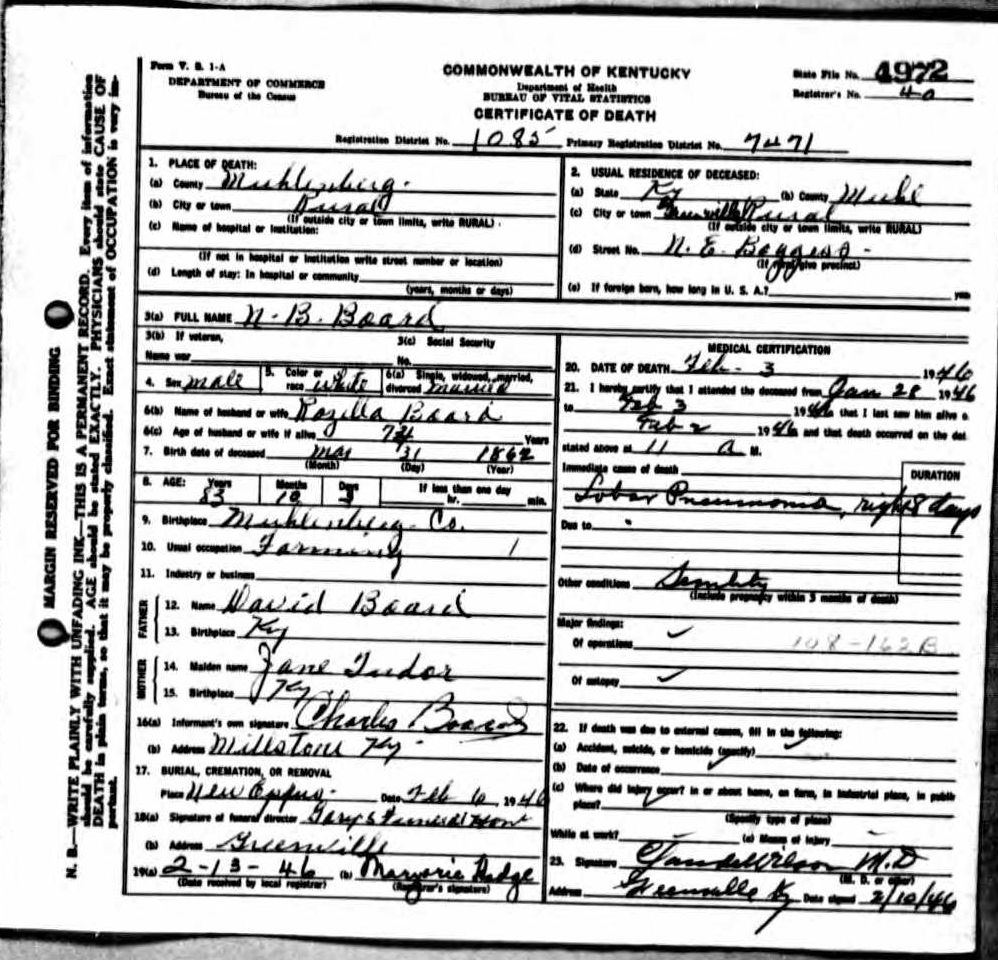 Form V. S. 1-A
DEPARTMENT OF COMMERCE
Bureau of the Census
COMMONWEALTH OF KENTUCKY
Department of Health
BUREAU OF VITAL STATISTICS
CERTIFICATE OF DEATH
State File No. 4972
Registrar's No. 40
Registration District No. 1085 Primary Registration District No. 7471
1. PLACE OF DEATH:
(a) County Muhlenberg.
(b) City or town Rural
(If outside city or town limits, write RURAL)
(c) Name of hospital or institution:
(If not in hospital or institution write street number or location)
(d) Length of stay: In hospital or community
(years, months or days)
2. USUAL RESIDENCE OF DECEASED:
(a) State Ky (b) County Muhl
(c) City or town Greenville Rural
(If outside city or town limits, write RURAL)
(d) Street No. N. E. Boggess -
(If rural give precinct)
(e) If foreign born, how long in U. S. A.? years
3(a) FULL NAME N. B. Board
3(b) If veteran,
Name war
3(c) Social Security
No.
4. Sex male 5. Color or race white 6(a) Single, widowed, married, divorced married
6(b) Name of husband or wife Rozilla Board
6(c) Age of husband or wife if alive 74 Years
7. Birth date of deceased Mar 31 1862
(Month) (Day) (Year)
8. AGE: Years 83 Months 10 Days 3 If less than one day hr. min.
9. Birthplace Muhlenberg Co.
10. Usual occupation Farming
11. Industry or business
FATHER
12. Name David Board
13. Birthplace Ky
MOTHER
14. Maiden name Jane Tudor
15. Birthplace Ky
16(a) Informant's own signature Charles Board
(b) Address Millstone Ky.
17. BURIAL, CREMATION, OR REMOVAL
Place New Date Feb 1946
18(a) Signature of funeral director Gary's Funeral Home
(b) Address Greenville
19(a) 2-13-46 (b) Marjorie Hodge
(Date received by local registrar) (Registrar's signature)
MEDICAL CERTIFICATION
20. DATE OF DEATH Feb - 3 1946
21. I hereby certify that I attended the deceased from Jan 28 1946
to Feb 3 1946 that I last saw him alive o
Feb 2 1946 and that death occurred on the dat
stated above at 11 A M.
Immediate cause of death
DURATION
Lobar Pneumonia, right 8 days
Due to
Other conditions Senility
(Include pregnancy within 3 months of death)
Major findings:
Of operations ✓ 108-162B
Of autopsy ✓
22. If death was due to external causes, fill in the following:
(a) Accident, suicide, or homicide (specify)
(b) Date of occurrence
(c) Where did injury occur? in or about home, on farm, in industrial place, in public
place?
(Specify type of place)
While at work? (e) Means of injury
23. Signature Claude Wilson M.D
(M. D. or other)
Address Greenville Ky Date signed 2/10/46
MARGIN RESERVED FOR BINDING
N. B.—WRITE PLAINLY WITH UNFADING INK—THIS IS A PERMANENT RECORD. Every item of information
should be carefully supplied. AGE should be stated EXACTLY. PHYSICIANS should state CAUSE OF
DEATH in plain terms, so that it may be properly classified. Exact statement of OCCUPATION is very im-
portant.